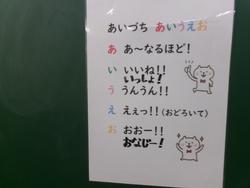 あいづち あいうえお
あ あ～なるほど!
い いいね!!
いっしょ!
う うんうん!!
え えぇっ!!(おどろいて)
お おおー!!
おなじー!